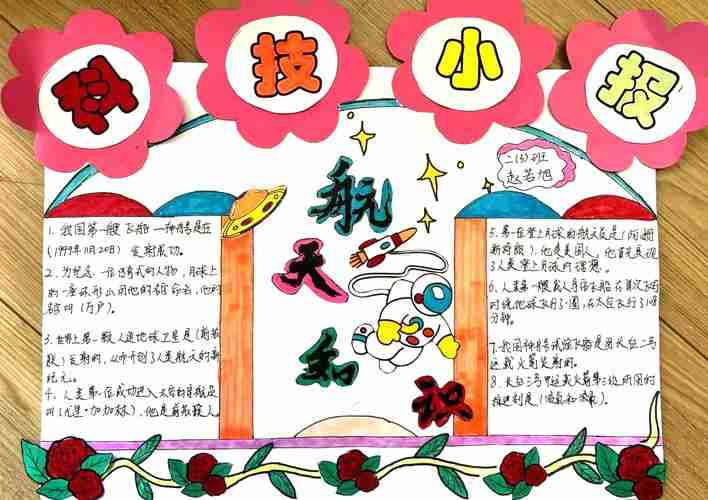 科技小报
航天知识
二(5)班
赵若旭
1. 我国第一艘飞船一神舟号是在
(1999年11月20日) 发射成功。
2. 为纪念一位传奇式的人物,月球上
的一座环形山用他的名命名,他的
名叫 (万户)。
3. 世界上第一颗人造地球卫星是(前苏
联)发射的,从而开创了人类航天的新
纪元。
4. 人类第一位成功进入太空的宇航员
叫(尤里·加加林),他是前苏联人。
5. 第一位登上月球的航天员是(阿姆
斯特朗),他是美国人,他首先实现
了人类登上月球的理想。
6. 人类第一艘载人宇宙飞船在首次飞行
时绕地球飞行了1圈,在太空飞行了108
分钟。
7. 我国神舟号试验飞船是由长征二号
运载火箭发射的。
8. 长征三号甲运载火箭第三级所用的
推进剂是(液氢和液氧)。